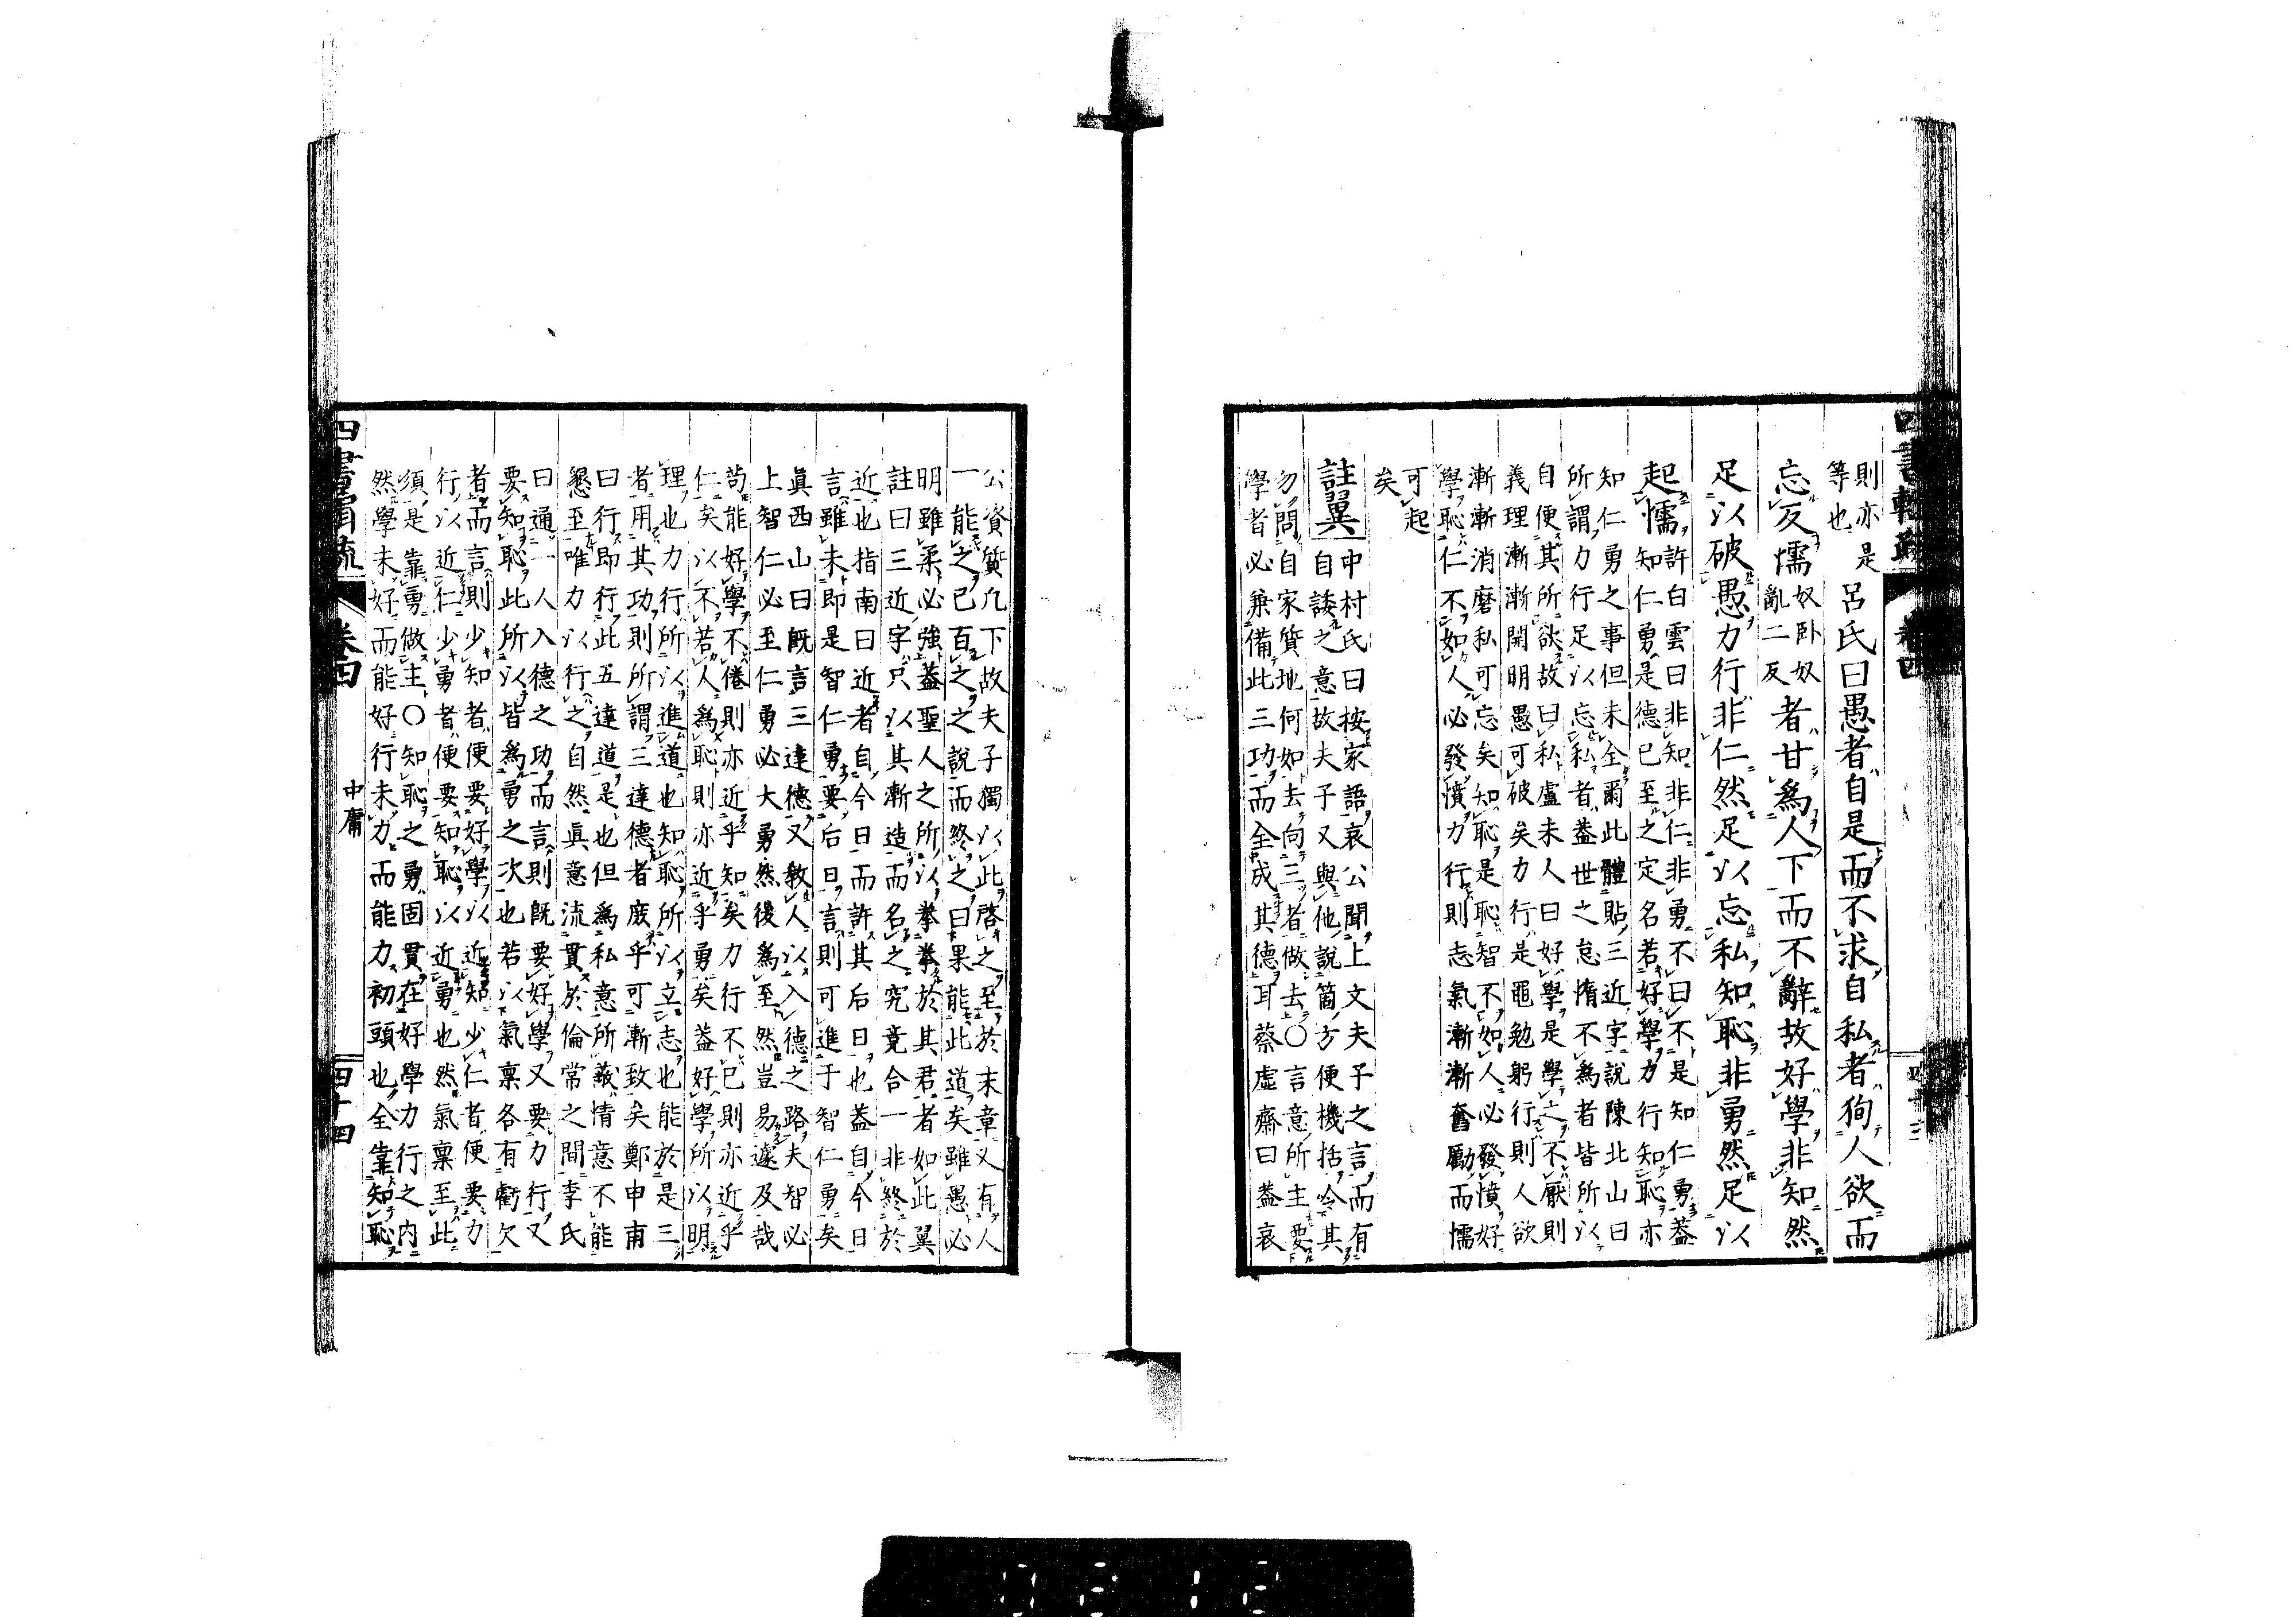 則亦
等也
是
呂氏曰愚者自是而不求自私者狥人欲而
忘反懦
奴臥奴
亂二反
者甘爲人下而不辭故好學非知然
足以破愚力行非仁然足以忘私知恥非勇然足以
起懦
許白雲曰非知非仁非勇不曰不是知仁勇蓋
知仁勇是德已至之定名若好學力行知恥亦
知仁勇之事但未全爾此體貼三近字說陳北山曰
所謂力行足以忘私者蓋世之怠惰不爲者皆所以
自便其所欲故曰私盧未人曰好學是學之不厭則
義理漸漸開明愚可破矣力行是黽勉躬行則人欲
漸漸消磨私可忘矣知恥是恥智不如人必發憤好
學恥仁不如人必發憤力行則志氣漸漸奮勵而懦
可起
矣
註翼
中村氏曰按家語哀公聞上文夫子之言而有
自諉之意故夫子又與他說箇方便機括令其
勿問自家質地何如去向三者做去○言意所主要
學者必兼備此三功而全成其德耳蔡虛齋曰蓋哀
公資質凢下故夫子獨以此啓之至於末章又有人
一能之己百之之說而終之曰果能此道矣雖愚必
明雖柔必強蓋聖人之所以拳拳於其君者如此翼
註曰三近字只以其漸造而名之究竟合一非終於
近也指南曰近者自今日而許其后日也蓋自今日
言雖未即是智仁勇要后日言則可進于智仁勇矣
眞西山曰既言三達德又敎人以入德之路夫智必
上智仁必至仁勇必大勇然後爲至然豈易遽及哉
苟能好學不倦則亦近乎知矣力行不已則亦近乎
仁矣以不若人爲恥則亦近乎勇矣蓋好學所以明
理也力行所以進道也知恥所以立志也能於是三
者用其功則所謂三達德者庶乎可漸致矣鄭申甫
曰行即行此五達道是也但爲私意所蔽情意不能
懇至唯力以行之自然眞意流貫於倫常之間李氏
曰通一人入德之功而言則既要好學又要力行又
要知恥此所以皆爲勇之次也若以氣稟各有虧欠
者而言則少知者便要好學以近知少仁者便要力
行以近仁少勇者便要知恥以近勇也然氣稟至此
須是靠勇做主○知恥之勇固貫在好學力行之內
然學未好而能好行未力而能力初頭也全靠知恥
四書
卷四
中庸
四十四